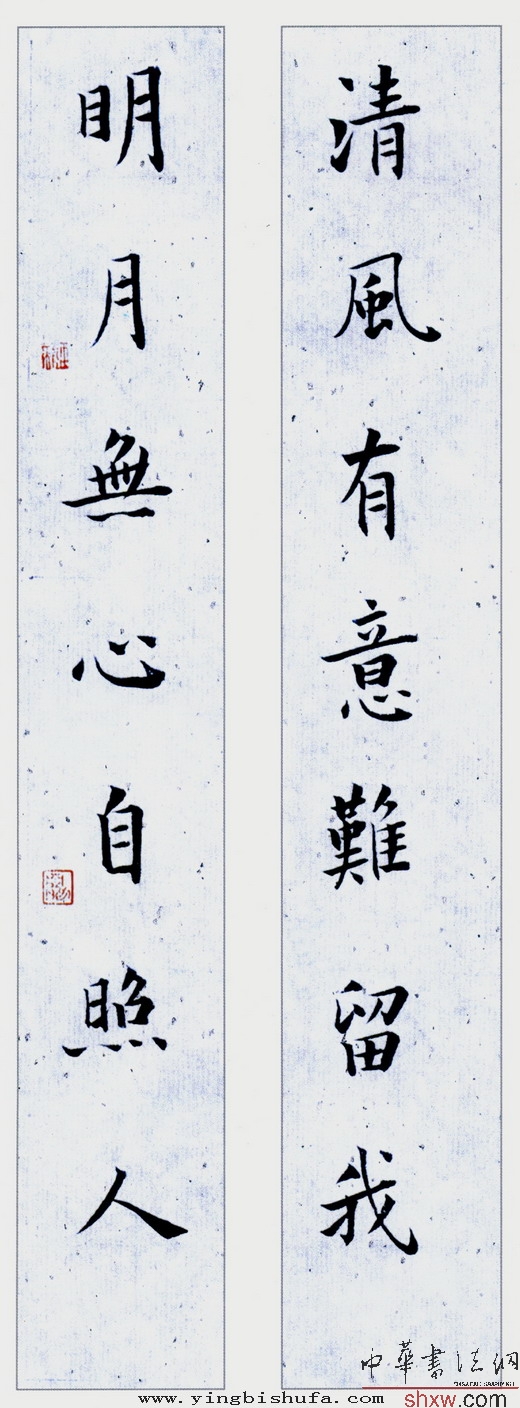 清風有意難留我
明月無心自照人
中華書法網
www.yingbishufa.com
shxw.com